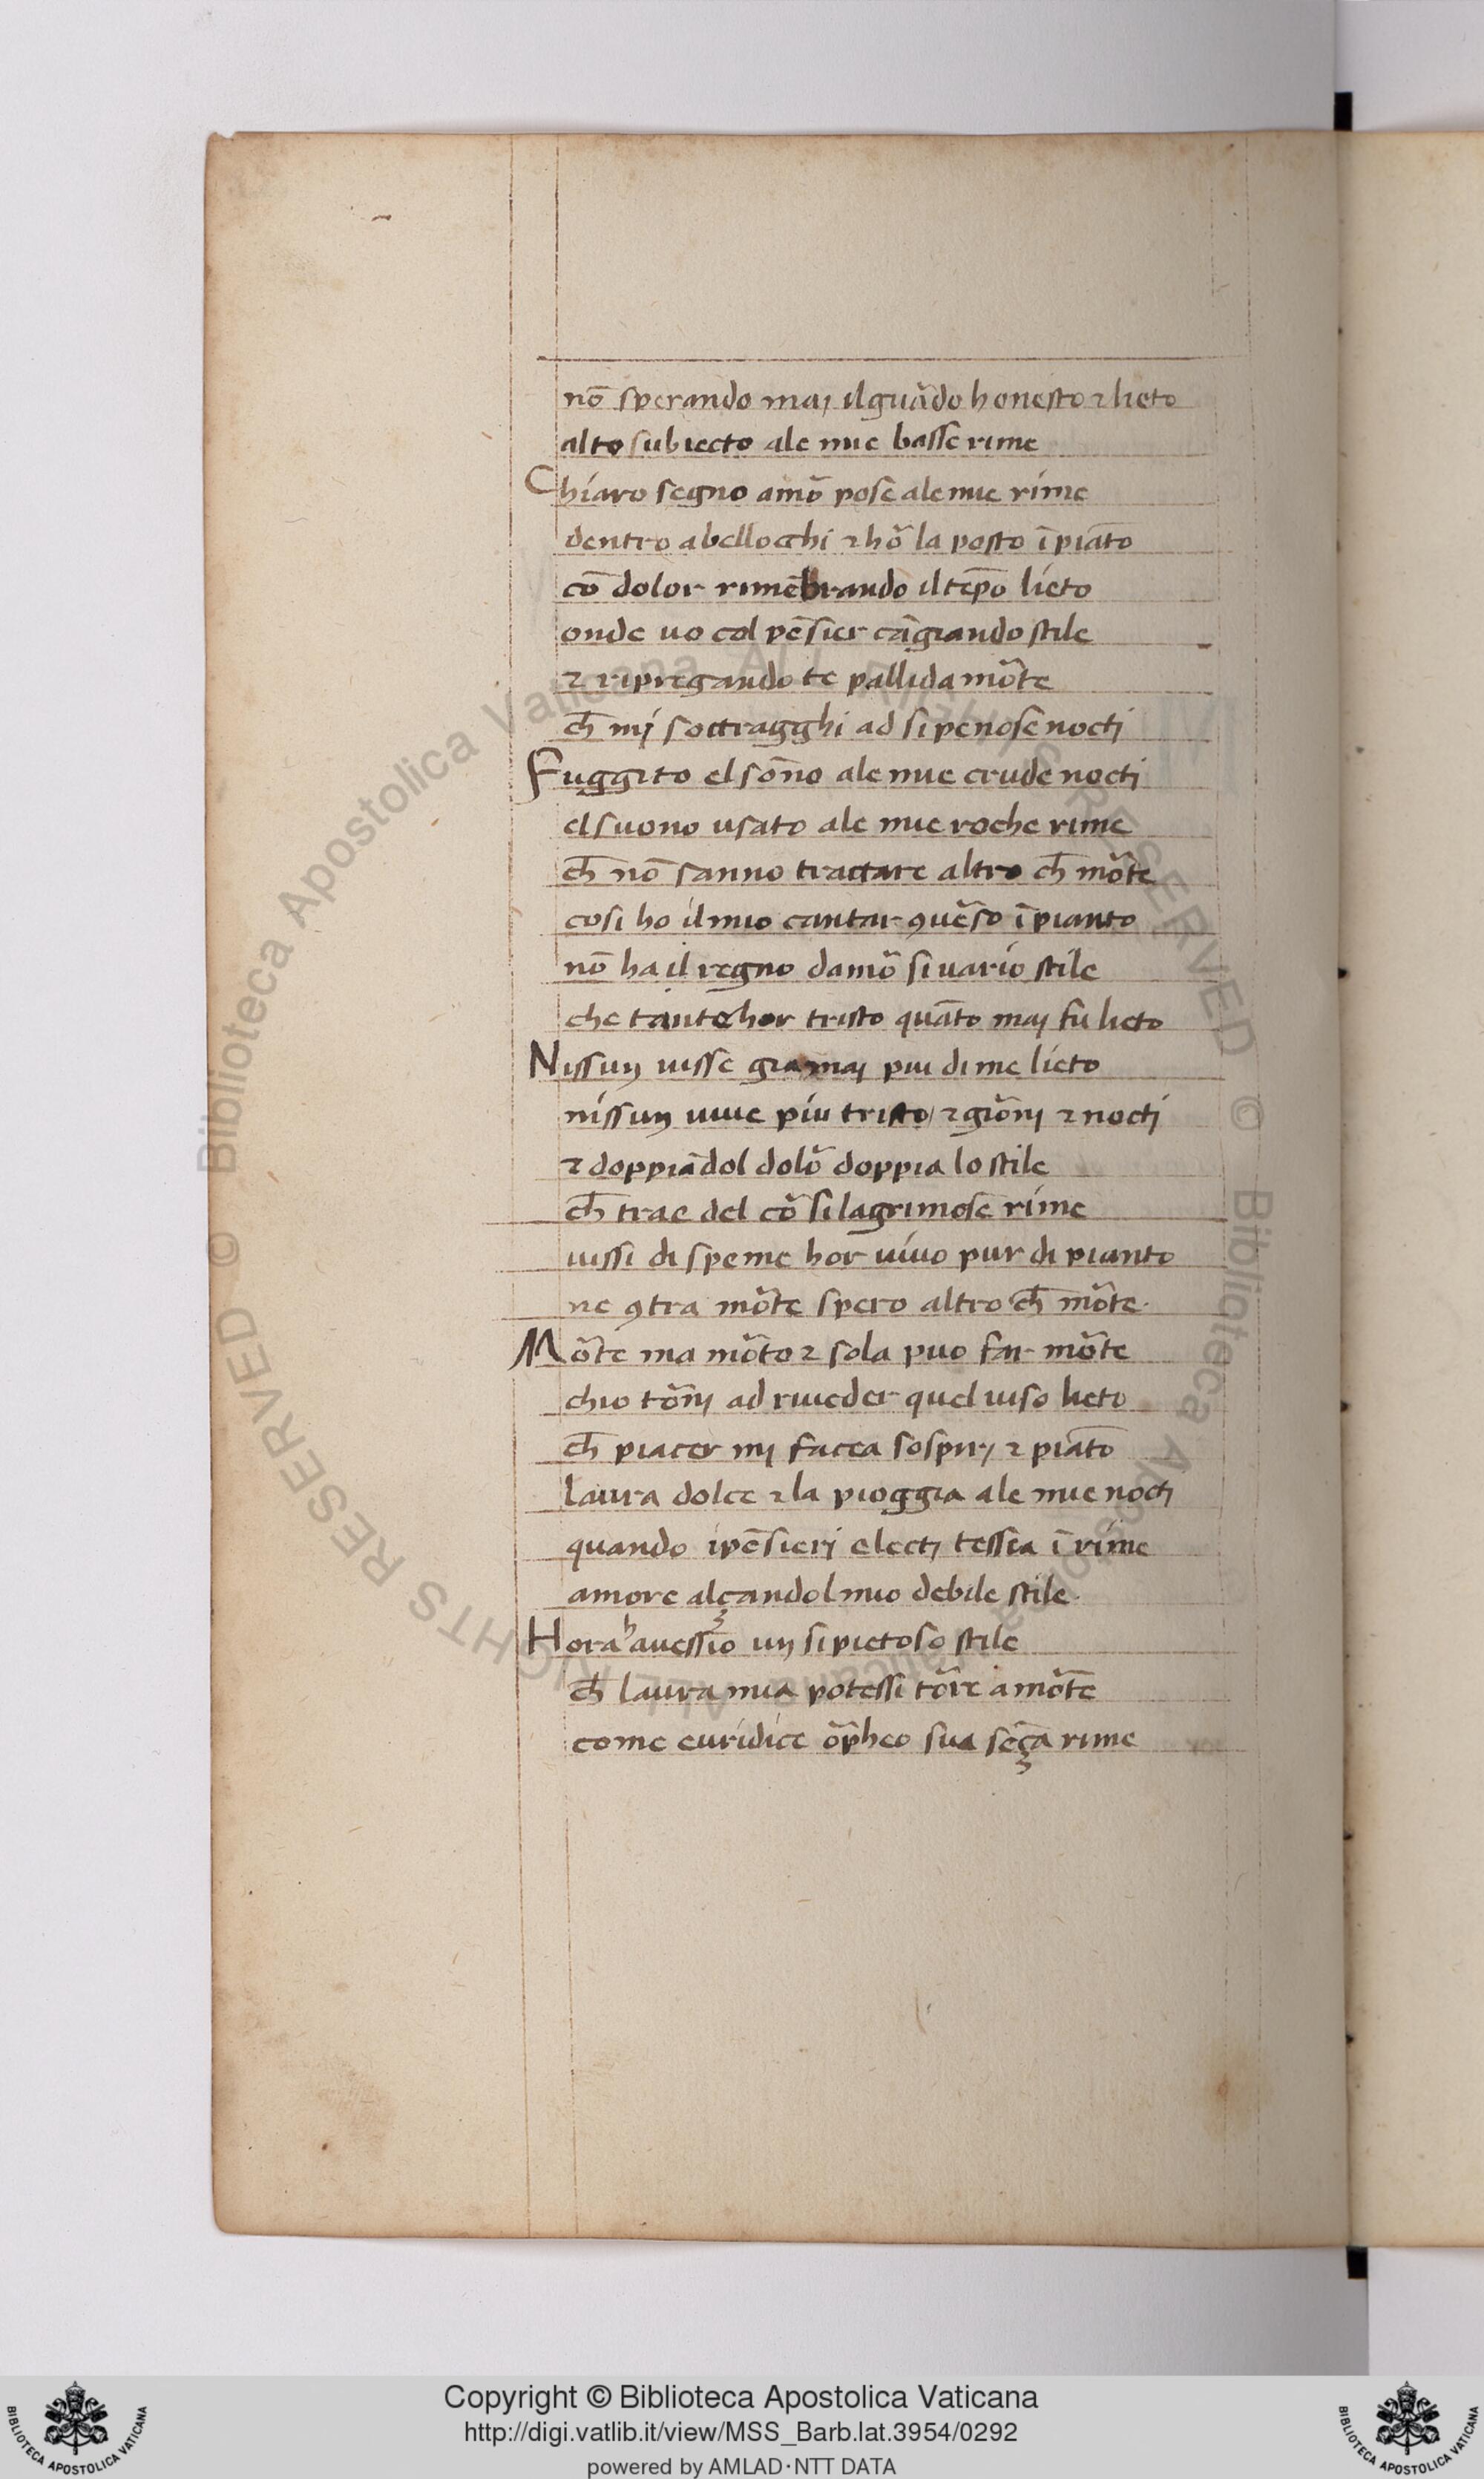 nō sperando maj ilguādo honesto ⁊ lieto
alto subiecto ale mie basse rime
Chiaro segno amō pose ale mie rime
dentro abellocchi ⁊ hō la posto ī piāto
cō dolor rimēbrando il tēpo lieto
onde uo col pēsier cāgiando stile
⁊ ripregando te pallida mōte
ch̄ mj sottragghi ad si penose noctj
Fuggito el sōno ale mie crude noctj
el suono usato ale mie roche rime
ch̄ nō sanno tractare altro ch̄ mōte
cosi ho il mio cantar ꝯuēso ī pianto
nō ha il regno damō si uario stile
che tantehor tristo quāto maj fu lieto
Nissun uisse gia maj piu di me lieto
nissun uiue piu tristo / ⁊ giōnj ⁊ noctj
⁊ doppiādol dolō doppia lo stile
ch̄ trae del cō si lagrimose rime
uissi di speme hor uiuo pur di pianto
ne ꝯtra mōte spero altro ch̄ mōte.
Mōte ma mōto ⁊ sola puo far mōte
chio tōnj ad riueder quel uiso lieto
ch̄ piacer mj facea sospirj ⁊ piāto
laura dolce ⁊ la pioggia ale mie noctj
quando i pēsierj electj tessea ī rime
amore alçandol mio debile stile.
Hora hauessio un si pietoso stile
ch̄ laura mia potessi tōre a mōte
come euridice ōpheo sua sēça rime
© Biblioteca Apostolica Vaticana ALL RIGHTS RESERVED © Biblioteca Apostolica Vaticana ALL RIGHTS RESERVED
Copyright © Biblioteca Apostolica Vaticana
http://digi.vatlib.it/view/MSS_Barb.lat.3954/0292
powered by AMLAD·NTT DATA
BIBLIOTECA APOSTOLICA VATICANA
BIBLIOTECA APOSTOLICA VATICANA